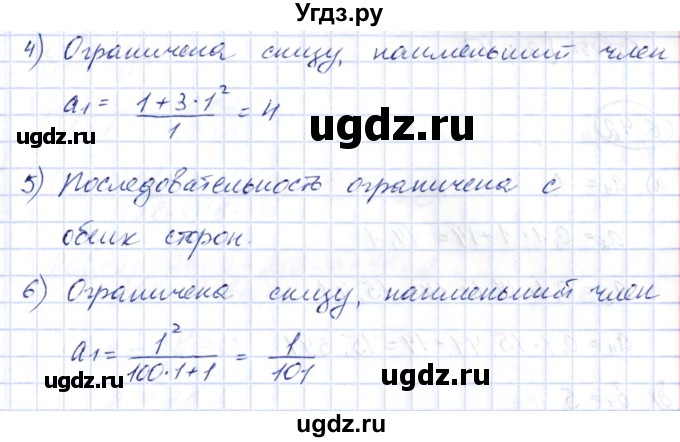 Угдз.ру
4) Ограничена снизу, наименьший член
a₁ = (1+3·1²)/1 = 4
ugdz.ru
5) Последовательность ограничена с
обеих сторон.
ugdz.ru
ugdz.ru
6) Ограничена снизу, наименьший член
a₁ = 1²/(100·1+1) = 1/101
ugdz.ru
ugdz.ru
ugdz.ru